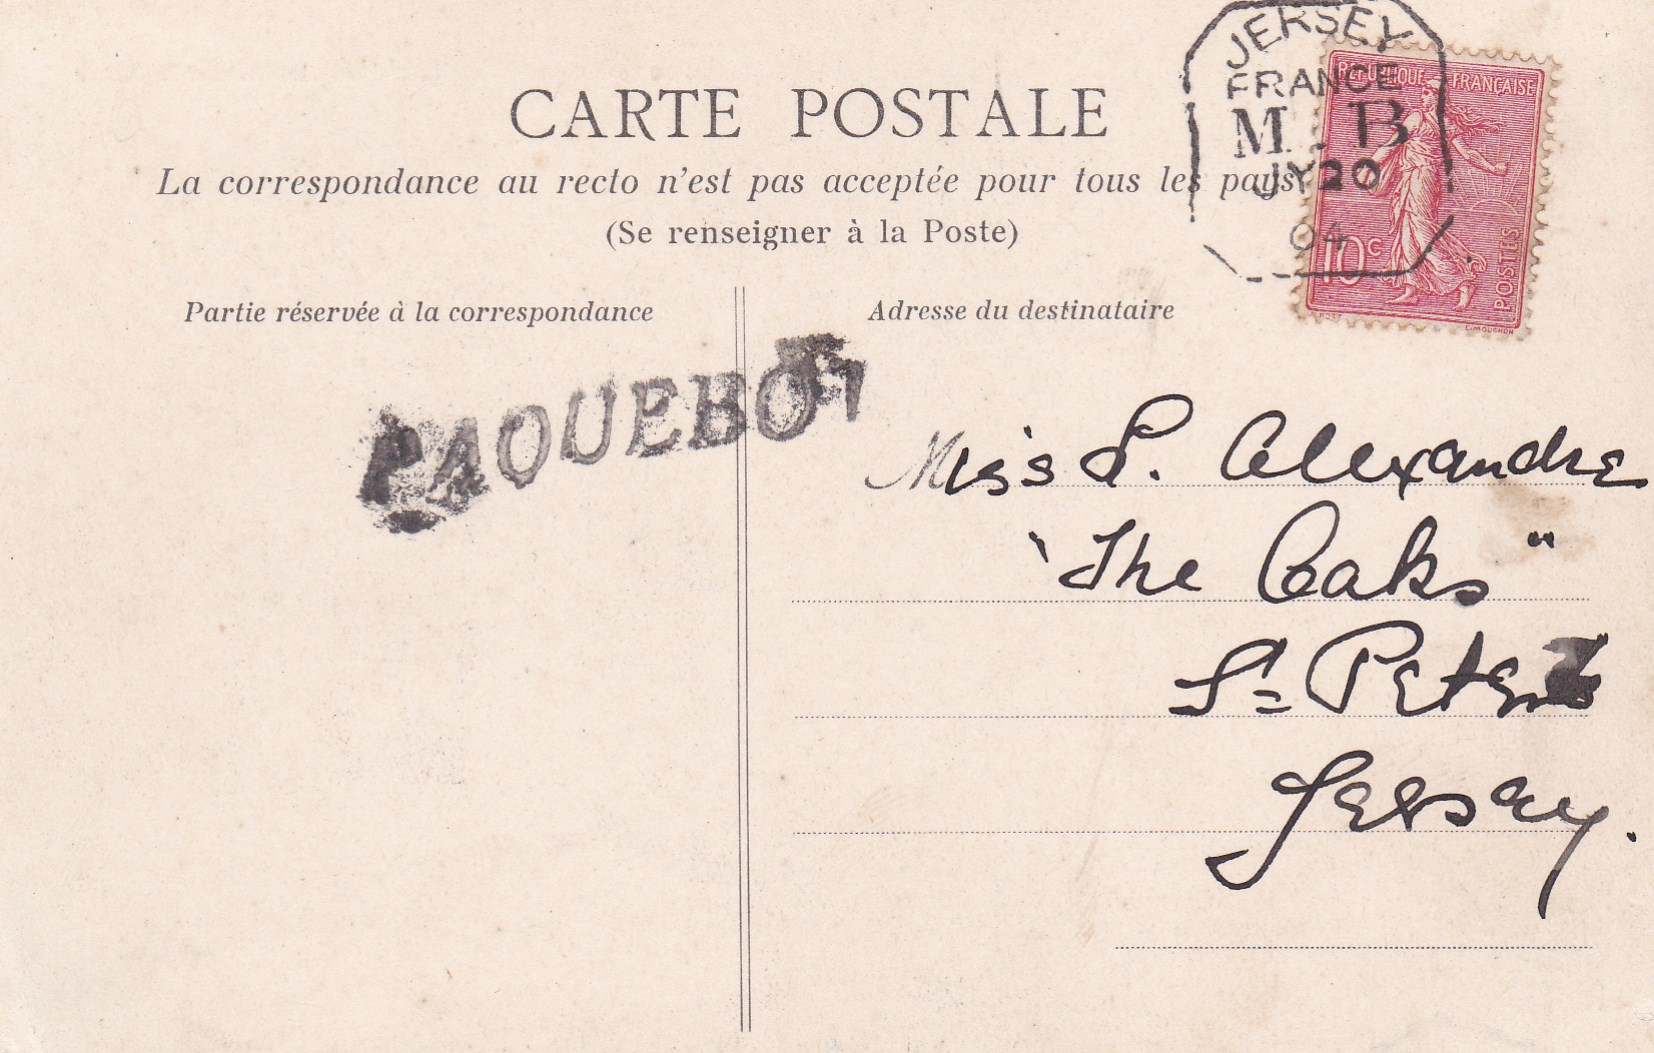 JERSEY
FRANCE
M.B
JY 20
04
REPUBLIQUE FRANÇAISE
10c
POSTES
L.MOUCHON
CARTE POSTALE
La correspondance au recto n'est pas acceptée pour tous les pays
(Se renseigner à la Poste)
Partie réservée à la correspondance
Adresse du destinataire
PAQUEBOT
Miss L. Allexandre
"The Oaks"
St Peters
Jersey.